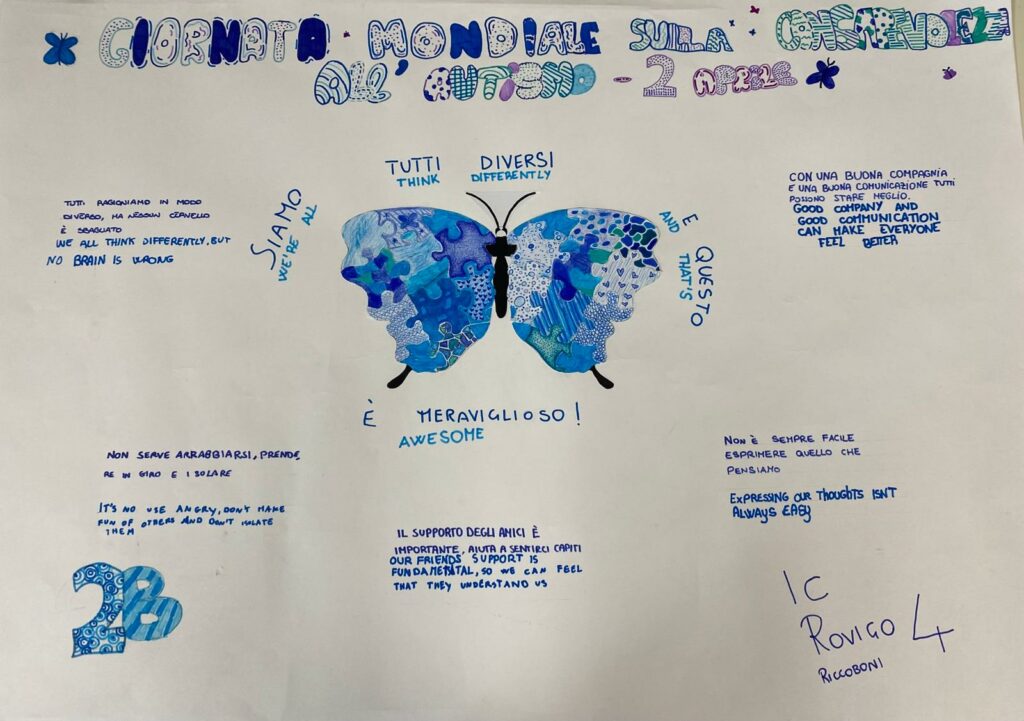 GIORNATA MONDIALE SULLA CONSAPEVOLEZZA
ALL' AUTISMO - 2 APRILE
TUTTI RAGIONIAMO IN MODO
DIVERSO, MA NESSUN CERVELLO
È SBAGLIATO
WE ALL THINK DIFFERENTLY, BUT
NO BRAIN IS WRONG
SIAMO TUTTI DIVERSI E QUESTO
WE'RE ALL THINK DIFFERENTLY AND THAT'S
È MERAVIGLIOSO!
AWESOME
CON UNA BUONA COMPAGNIA
E UNA BUONA COMUNICAZIONE TUTTI
POSSONO STARE MEGLIO.
GOOD COMPANY AND
GOOD COMMUNICATION
CAN MAKE EVERYONE
FEEL BETTER
NON SERVE ARRABBIARSI, PRENDE
RE IN GIRO E ISOLARE
IT'S NO USE ANGRY, DON'T MAKE
FUN OF OTHERS AND DON'T ISOLATE
THEM
IL SUPPORTO DEGLI AMICI È
IMPORTANTE, AIUTA A SENTIRCI CAPITI
OUR FRIENDS' SUPPORT IS
FUNDAMENTAL, SO WE CAN FEEL
THAT THEY UNDERSTAND US
NON È SEMPRE FACILE
ESPRIMERE QUELLO CHE
PENSIAMO
EXPRESSING OUR THOUGHTS ISN'T
ALWAYS EASY
2B
IC
ROVIGO 4
RICCOBONI